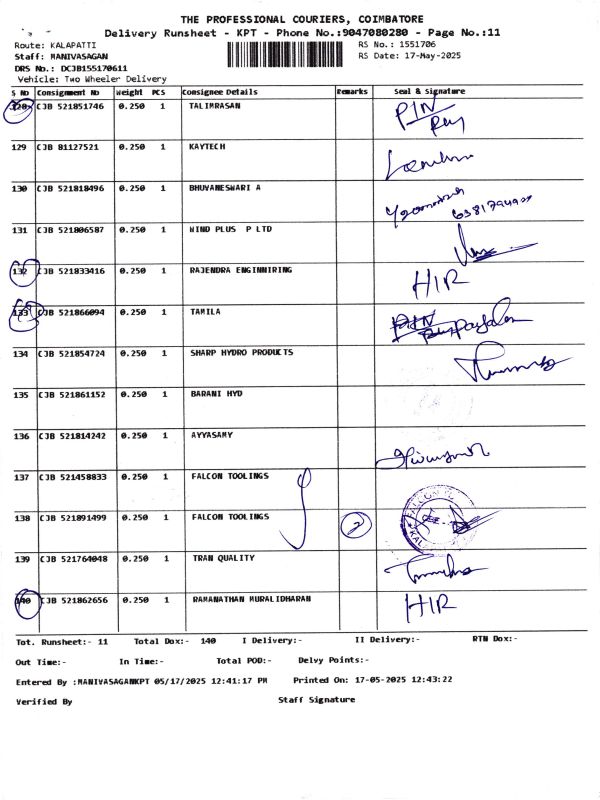 THE PROFESSIONAL COURIERS, COIMBATORE
Delivery Runsheet - KPT - Phone No.:9047080280 - Page No.:11
Route: KALAPATTI RS No.: 1551706
Staff: MANIVASAGAN RS Date: 17-May-2025
DRS No.: DCJB155170611
Vehicle: Two Wheeler Delivery
S No Consignment No Weight PCS Consignee Details Remarks Seal & Signature
128 CJB 521851746 0.250 1 TALIMRASAN PIN
129 CJB 81127521 0.250 1 KAYTECH
130 CJB 521818496 0.250 1 BHUVANESWARI A
131 CJB 521806587 0.250 1 WIND PLUS P LTD
132 CJB 521833416 0.250 1 RAJENDRA ENGINNIRING HIR
133 CJB 521866094 0.250 1 TAMILA PIN
134 CJB 521854724 0.250 1 SHARP HYDRO PRODUCTS
135 CJB 521861152 0.250 1 BARANI HYD
136 CJB 521814242 0.250 1 AYYASAMY
137 CJB 521458833 0.250 1 FALCON TOOLINGS
138 CJB 521891499 0.250 1 FALCON TOOLINGS 2 FALCON
139 CJB 521764048 0.250 1 TRAN QUALITY
140 CJB 521862656 0.250 1 RAMANATHAN MURALIDHARAN HIR
Tot. Runsheet:- 11 Total Dox:- 140 I Delivery:- II Delivery:- RTN Dox:-
Out Time:- In Time:- Total POD:- Delvy Points:-
Entered By :MANIVASAGANKPT 05/17/2025 12:41:17 PM Printed On: 17-05-2025 12:43:22
Verified By Staff Signature